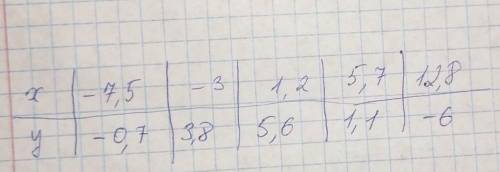 x -7,5 -3 1,2 5,7 12,8
y -0,7 3,8 5,6 1,1 -6